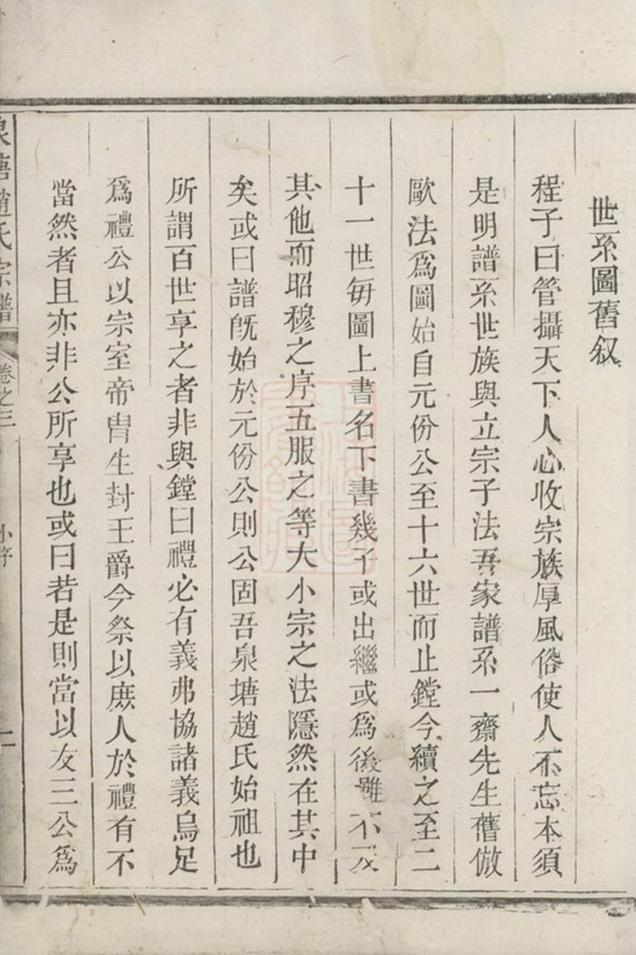 世系圖舊叙
程子曰管攝天下人心收宗族厚風俗使人不忘本須
是明譜系世族與立宗子法吾家譜系一齋先生舊倣
歐法爲圖始自元份公至十六世而止鏜今續之至二
十一世每圖上書名下書幾子或出繼或爲後雖不及
其他而昭穆之序五服之等大小宗之法隱然在其中
矣或曰譜旣始於元份公則公固吾泉塘趙氏始祖也
所謂百世享之者非與鏜曰禮必有義弗協諸義烏足
爲禮公以宗室帝胄生封王爵今祭以庶人於禮有不
當然者且亦非公所享也或曰若是則當以友三公爲
泉塘趙氏宗譜
卷之三
小序
二